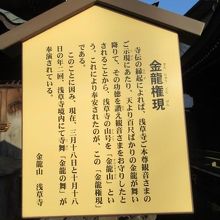 金龍権現
寺伝の縁起によれば、浅草寺ご本尊観音さまの
ご示現にあたり、天より百尺ばかりの金龍が舞い
降りて、その功徳を讃え観音さまをお守りしたと
されることから、浅草寺の山号を「金龍山」とい
う。これにより奉安されたのが、この「金龍権現」
である。
このことに因み、現在、三月十八日と十月十八
日の年二回、浅草寺境内にて寺舞「金龍の舞」が
奉演されている。
金龍山 浅草寺